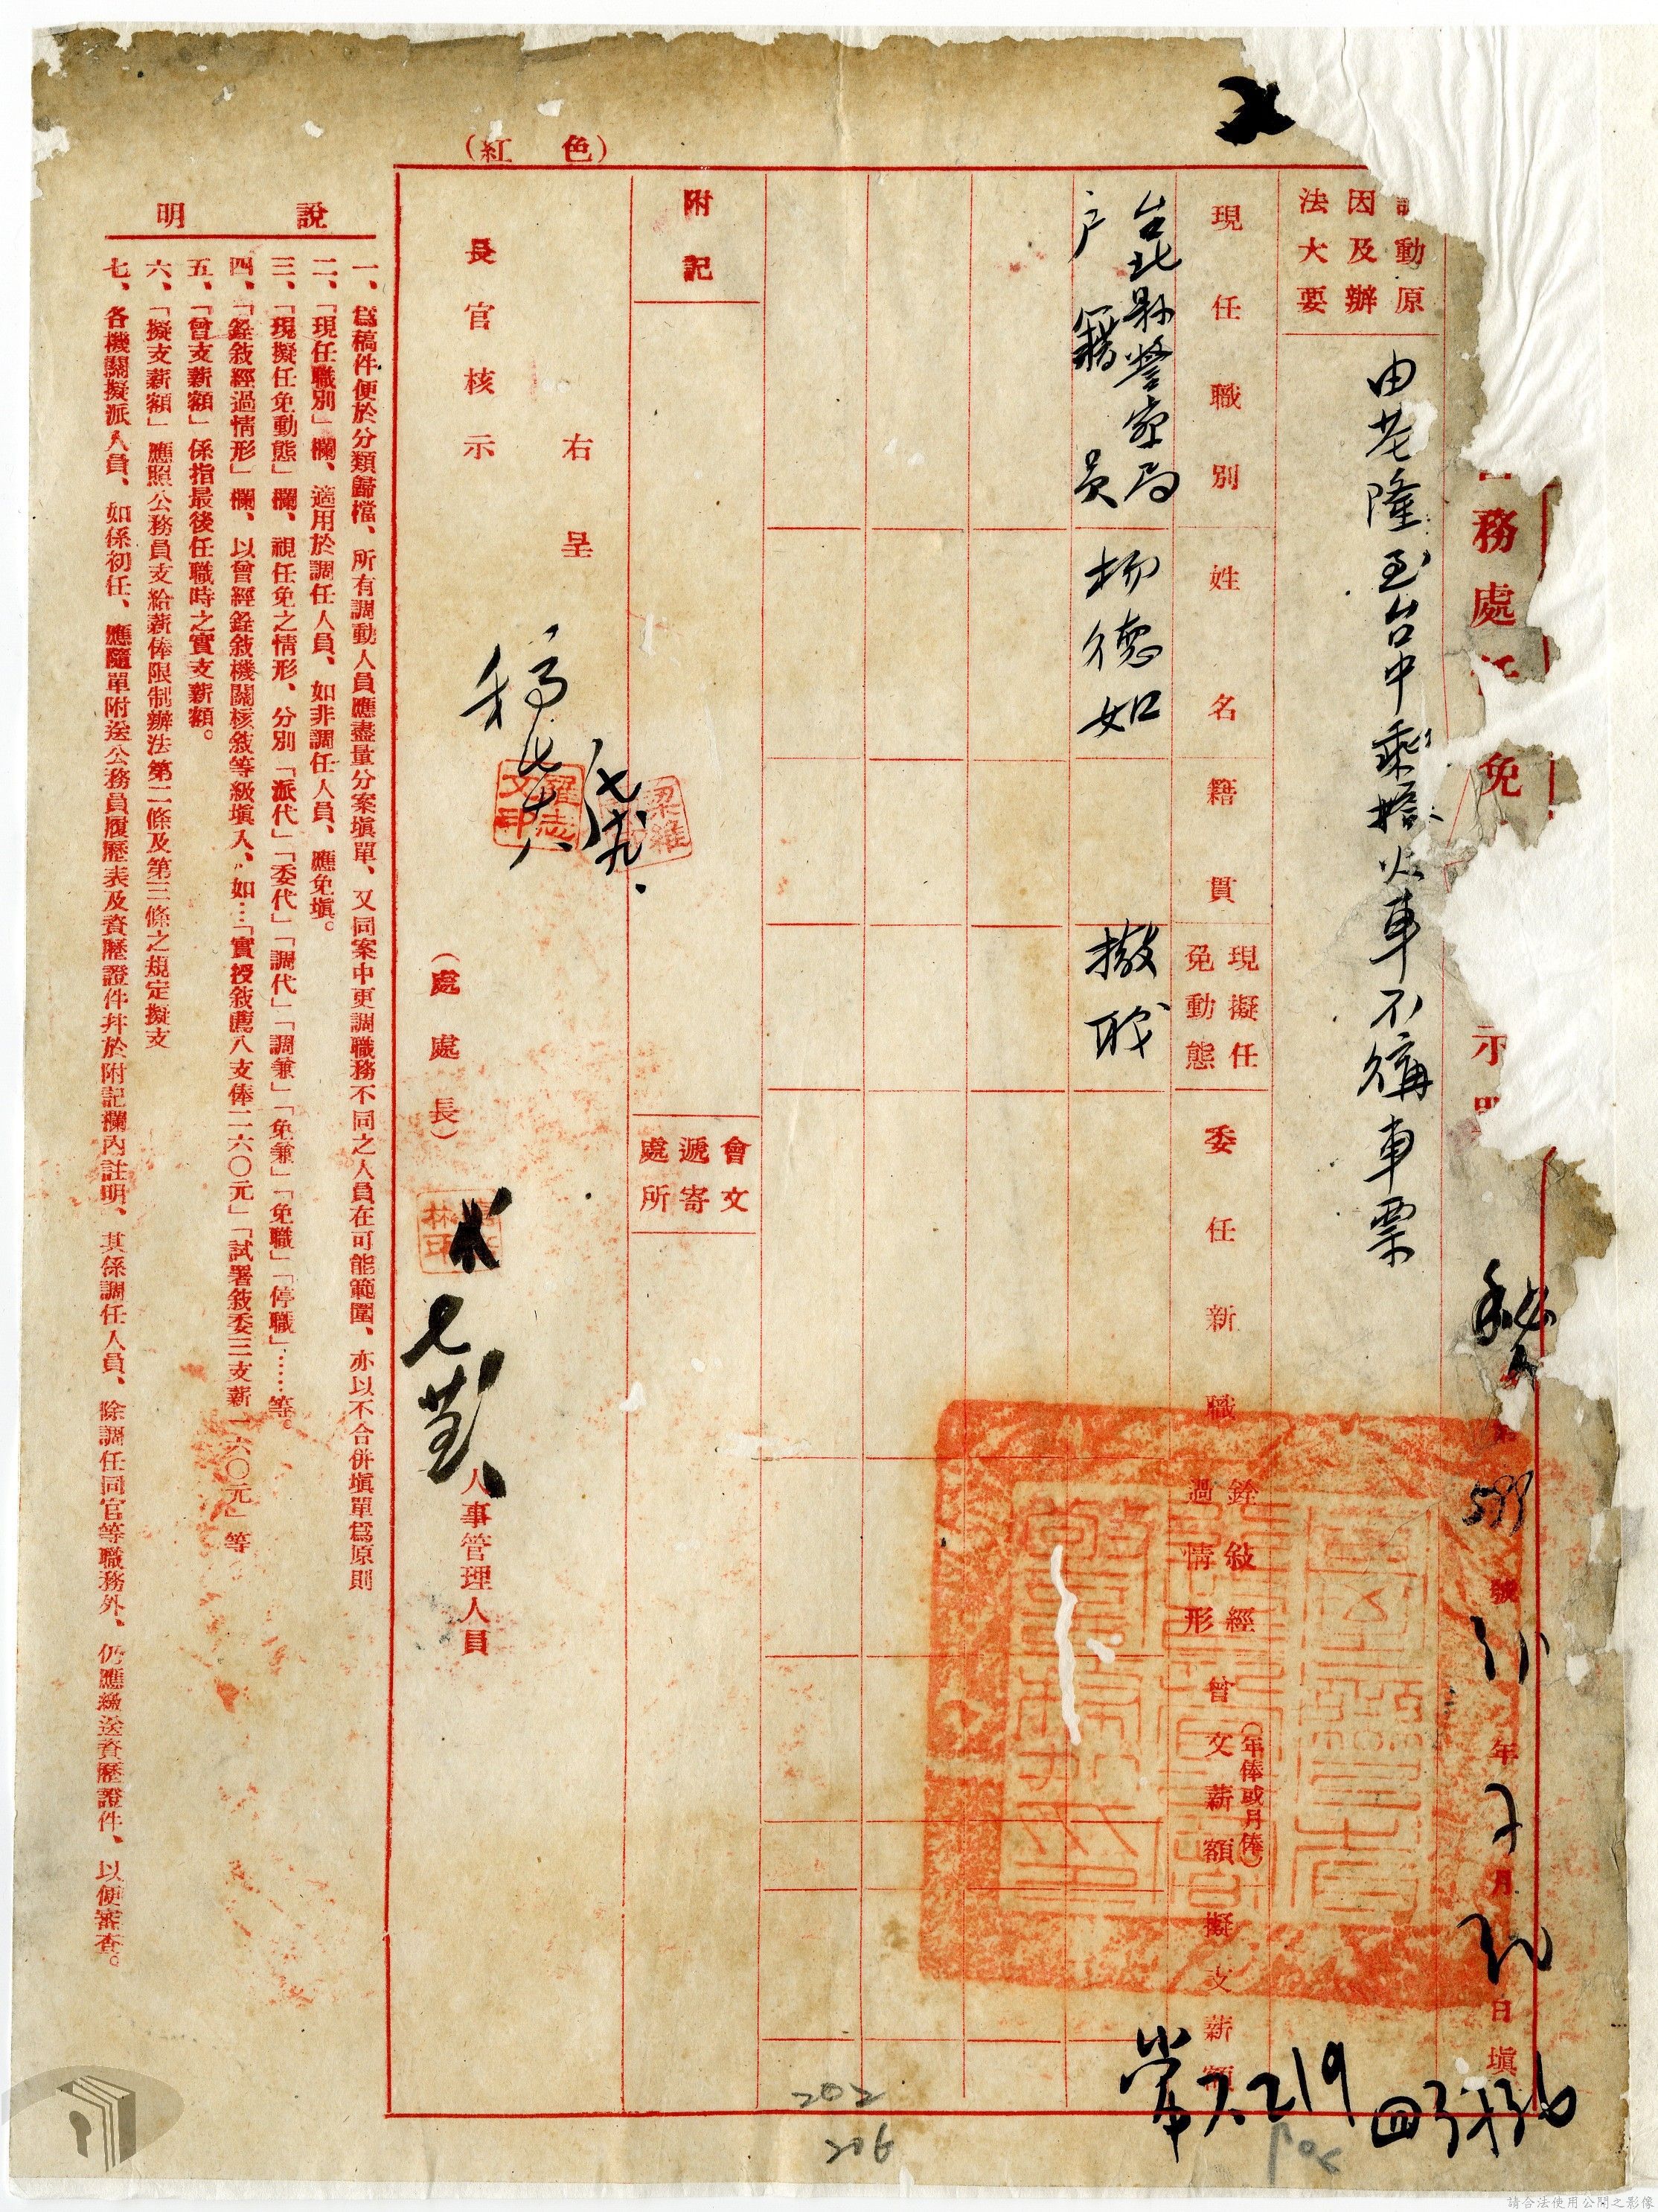 務處任免示單
第599號
年 月 日填
調動原因及辦法大要
由基隆至台中乘搭火車不購車票
現任職別
姓名
籍貫
現擬任免動態
委任新職
銓敍經過情形
曾支薪額
(年俸或月俸)
擬支薪額
台北縣警察局
戶籍員
楊德如
撤職
附記
會文遞寄處所
右呈
長官核示
(處處長)
人事管理人員
(紅色)
說明
一、爲稿件便於分類歸檔、所有調動人員應盡量分案塡單、又同案中更調職務不同之人員在可能範圍、亦以不合併塡單爲原則
二、「現任職別」欄、適用於調任人員、如非調任人員、應免塡。
三、「現擬任免動態」欄、視任免之情形、分別「派代」「委代」「調代」「調兼」「免兼」「免職」「停職」……等。
四、「銓敍經過情形」欄、以曾經銓敍機關核敍等級塡入、如…「實授敍薦八支俸二六〇元」「試署敍委三支薪一六〇元」等
五、「曾支薪額」係指最後任職時之實支薪額。
六、「擬支薪額」應照公務員支給薪俸限制辦法第二條及第三條之規定擬支
七、各機關擬派人員、如係初任、應隨單附送公務員履歷表及資歷證件幷於附記欄內註明、其係調任人員、除調任同官等職務外、仍應繳送資歷證件、以便審查。
202
206
請合法使用公開之影像